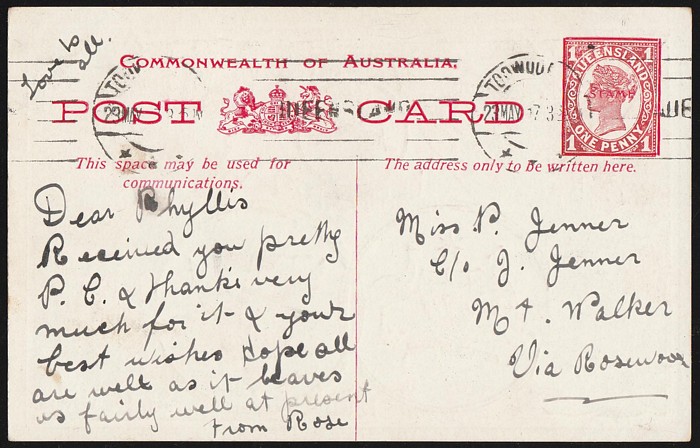 Love to
all.
COMMONWEALTH OF AUSTRALIA.
POST CARD
QUEENSLAND
23 MAY
23 MAY
QUEENSLAND
STAMP
1 1
ONE PENNY
1 1
This space may be used for
communications.
The address only to be written here.
Dear Phyllis
Received you pretty
P. C. & thanks very
much for it & your
best wishes Hope all
are well as it leaves
us fairly well at present
From Rose
Miss P. Jenner
C/o J. Jenner
Mt. Walker
Via Rosewood